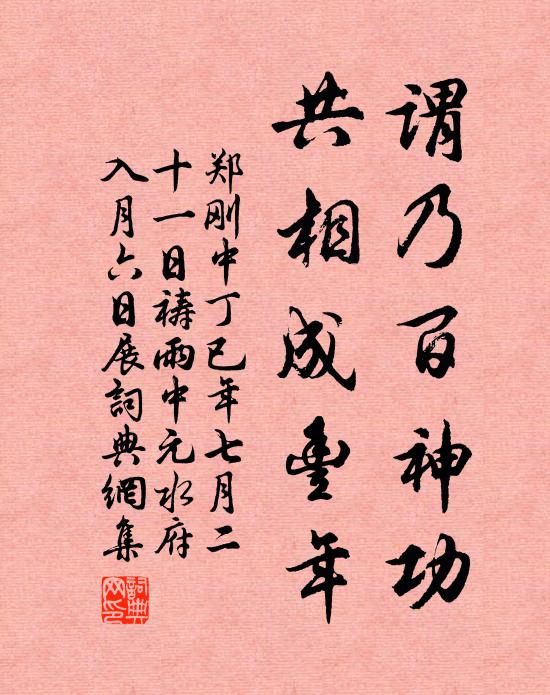 谓乃百神功
共相成豊年
郑刚中丁巳年七月二
十一日祷雨中元水府
入月六日展詞典網集
詞典网印